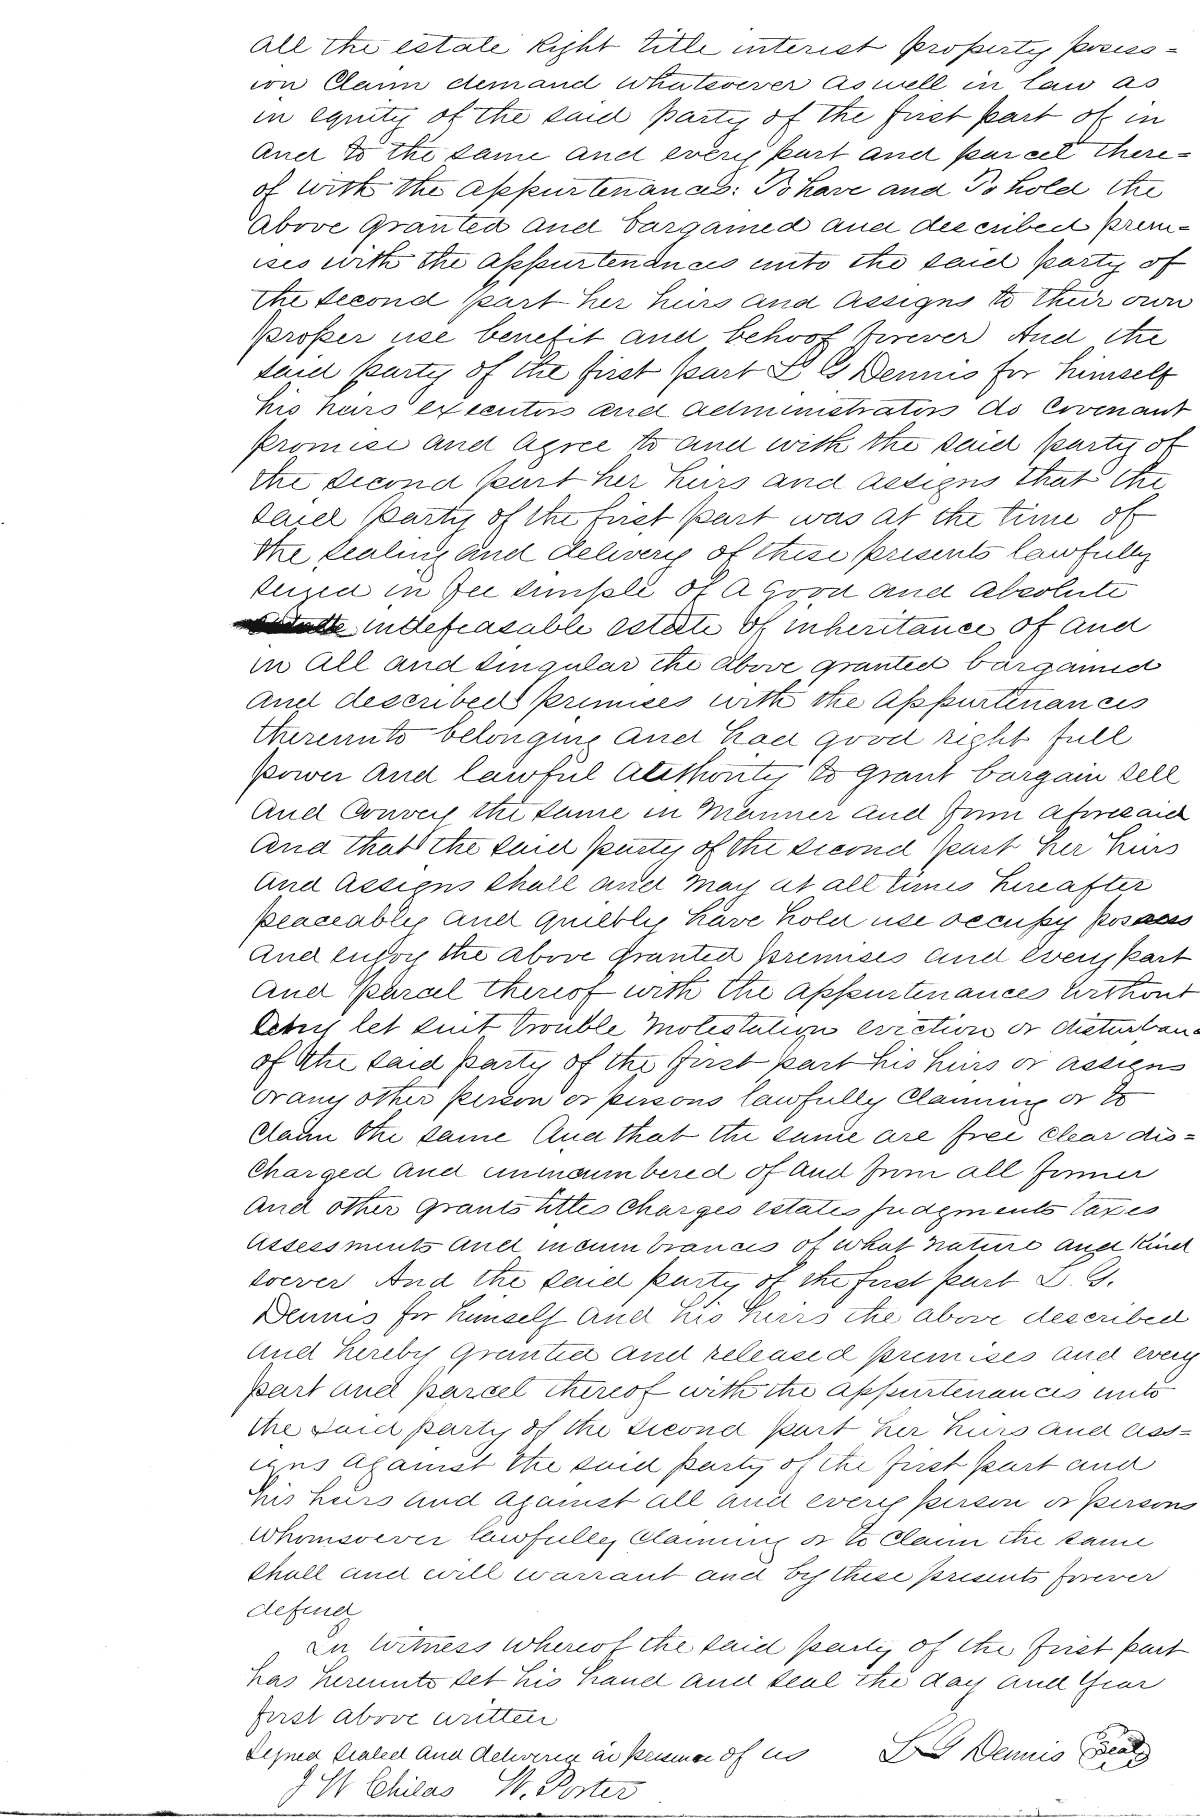 all the estate Right title interest property posess=
ion Claim demand whatsoever as well in law as
in equity of the said party of the first part of in
and to the same and every part and parcel there=
of with the appurtenances: To have and To hold the
above granted and bargained and described prem=
ises with the appurtenances unto the said party of
the second part her heirs and assigns to their own
proper use benefit and behoof forever And the
said party of the first part L G Dennis for himself
his heirs executors and administrators do covenant
promise and agree to and with the said party of
the second part her heirs and assigns that the
said party of the first part was at the time of
the sealing and delivery of these presents lawfully
seized in fee simple of a good and absolute
indefeasable estate of inheritance of and
in all and singular the above granted bargained
and described premises with the appurtenances
thereunto belonging and had good right full
power and lawful authority to grant bargain sell
and convey the same in manner and form aforesaid
and that the said party of the second part her heirs
and assigns shall and may at all times hereafter
peaceably and quietly have hold use occupy posess
and enjoy the above granted premises and every part
and parcel thereof with the appurtenances without
let suit trouble molestation eviction or disturbanc
of the said party of the first part his heirs or assigns
or any other person or persons lawfully claiming or to
claim the same And that the same are free clear dis=
charged and unincumbered of and from all former
and other grants titles charges estates judgments taxes
assessments and incumbrances of what nature and kind
soever And the said party of the first part L. G.
Dennis for himself and his heirs the above described
and hereby granted and released premises and every
part and parcel thereof with the appurtenances unto
the said party of the second part her heirs and ass=
igns against the said party of the first part and
his heirs and against all and every person or persons
whomsoever lawfully claiming or to claim the same
shall and will warrant and by these presents forever
defend
In Witness whereof the said party of the first part
has hereunto set his hand and seal the day and year
first above written
Signed sealed and delivered in presence of us L G Dennis Seal
J W Childs W. Porter